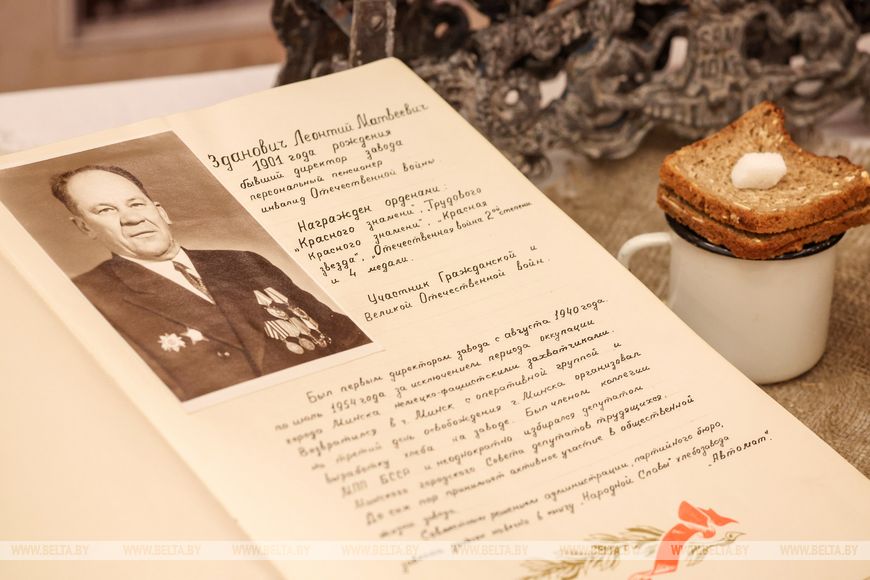 Зданович Леонтий Матвеевич
1901 года рождения
бывший директор завода
персональный пенсионер
инвалид Отечественной войны.
Награжден орденами:
"Красного знамени". Трудового
Красного знамени". "Красная
звезда". "Отечественная война 2ой степени
и 4 медали.
Участник Гражданской и
Великой Отечественной войн.
Был первым директором завода с августа 1940 года
по июль 1954 года за исключением периода оккупации
города Минска немецко-фашистскими захватчиками.
Возвратился в г. Минск с оперативной группой и
на третий день освобождения г. Минска организовал
выработку хлеба на заводе. Был членом коллегии
МПП БССР и неоднократно избирался депутатом
Минского городского Совета депутатов трудящихся.
До сих пор принимает активное участие в общественной
жизни завода.
Совместным решением администрации, партийного бюро,
в книгу "Народной Славы" хлебозавода
"Автомат".
WWW.BELTA.BY WWW.BELTA.BY WWW.BELTA.BY WWW.BELTA.BY WWW.BELTA.BY WWW.BELTA.BY WWW.BELTA.BY WWW.BELTA.BY